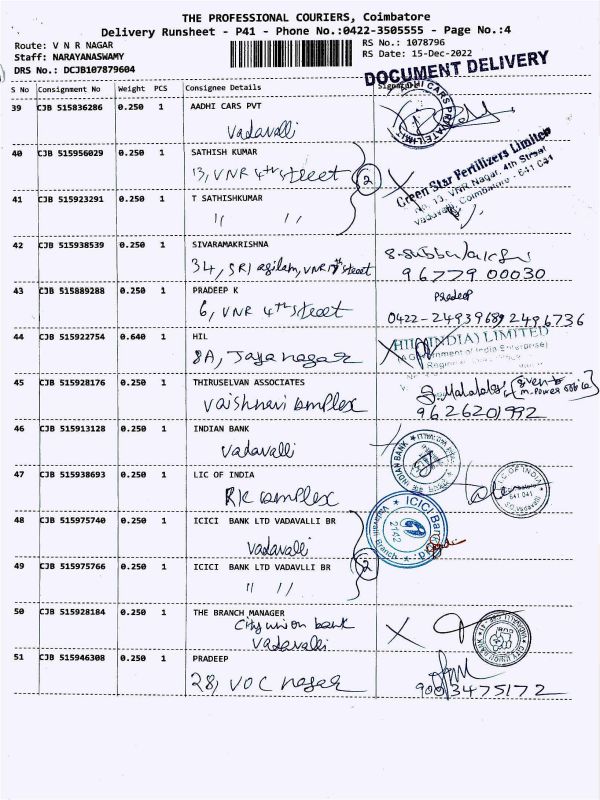 THE PROFESSIONAL COURIERS, Coimbatore
Delivery Runsheet - P41 - Phone No.:0422-3505555 - Page No.:4
Route: V N R NAGAR
RS No.: 1078796
Staff: NARAYANASWAMY
RS Date: 15-Dec-2022
DRS No.: DCJB107879604
DOCUMENT DELIVERY
S No Consignment No Weight PCS Consignee Details
39 CJB 515836286 0.250 1 AADHI CARS PVT
Vadavalli
AADHI CARS PRIVATE LIMITED
40 CJB 515956029 0.250 1 SATHISH KUMAR
13, VNR 4th street 2
Green Star Fertilizers Limited
No. 13, VNR Nagar, 4th Street
Vadavalli, Coimbatore - 641 041
41 CJB 515923291 0.250 1 T SATHISHKUMAR
" "
42 CJB 515938539 0.250 1 SIVARAMAKRISHNA
34, SRI agilam, VNR street
96779 00030
43 CJB 515889288 0.250 1 PRADEEP K
Pradeep
6, VNR 4th street
0422-2493968, 2496736
44 CJB 515922754 0.640 1 HIL
HIL (INDIA) LIMITED
(A Government of India Enterprise)
8A, Jaya nagar
Regional
45 CJB 515928176 0.250 1 THIRUSELVAN ASSOCIATES
Vaishnavi complex
given to M. Power office
9626201992
46 CJB 515913128 0.250 1 INDIAN BANK
Vadavalli
INDIAN BANK
47 CJB 515938693 0.250 1 LIC OF INDIA
RK complex
LIC OF INDIA
641 041
S.O. Vadavalli
48 CJB 515975740 0.250 1 ICICI BANK LTD VADAVALLI BR
Vadavalli
ICICI Bank
2142
Vadavalli Branch
49 CJB 515975766 0.250 1 ICICI BANK LTD VADAVALLI BR
" " 2
50 CJB 515928184 0.250 1 THE BRANCH MANAGER
City union bank
Vadavalli
CITY UNION BANK
51 CJB 515946308 0.250 1 PRADEEP
28, VOC nagar
9003475172